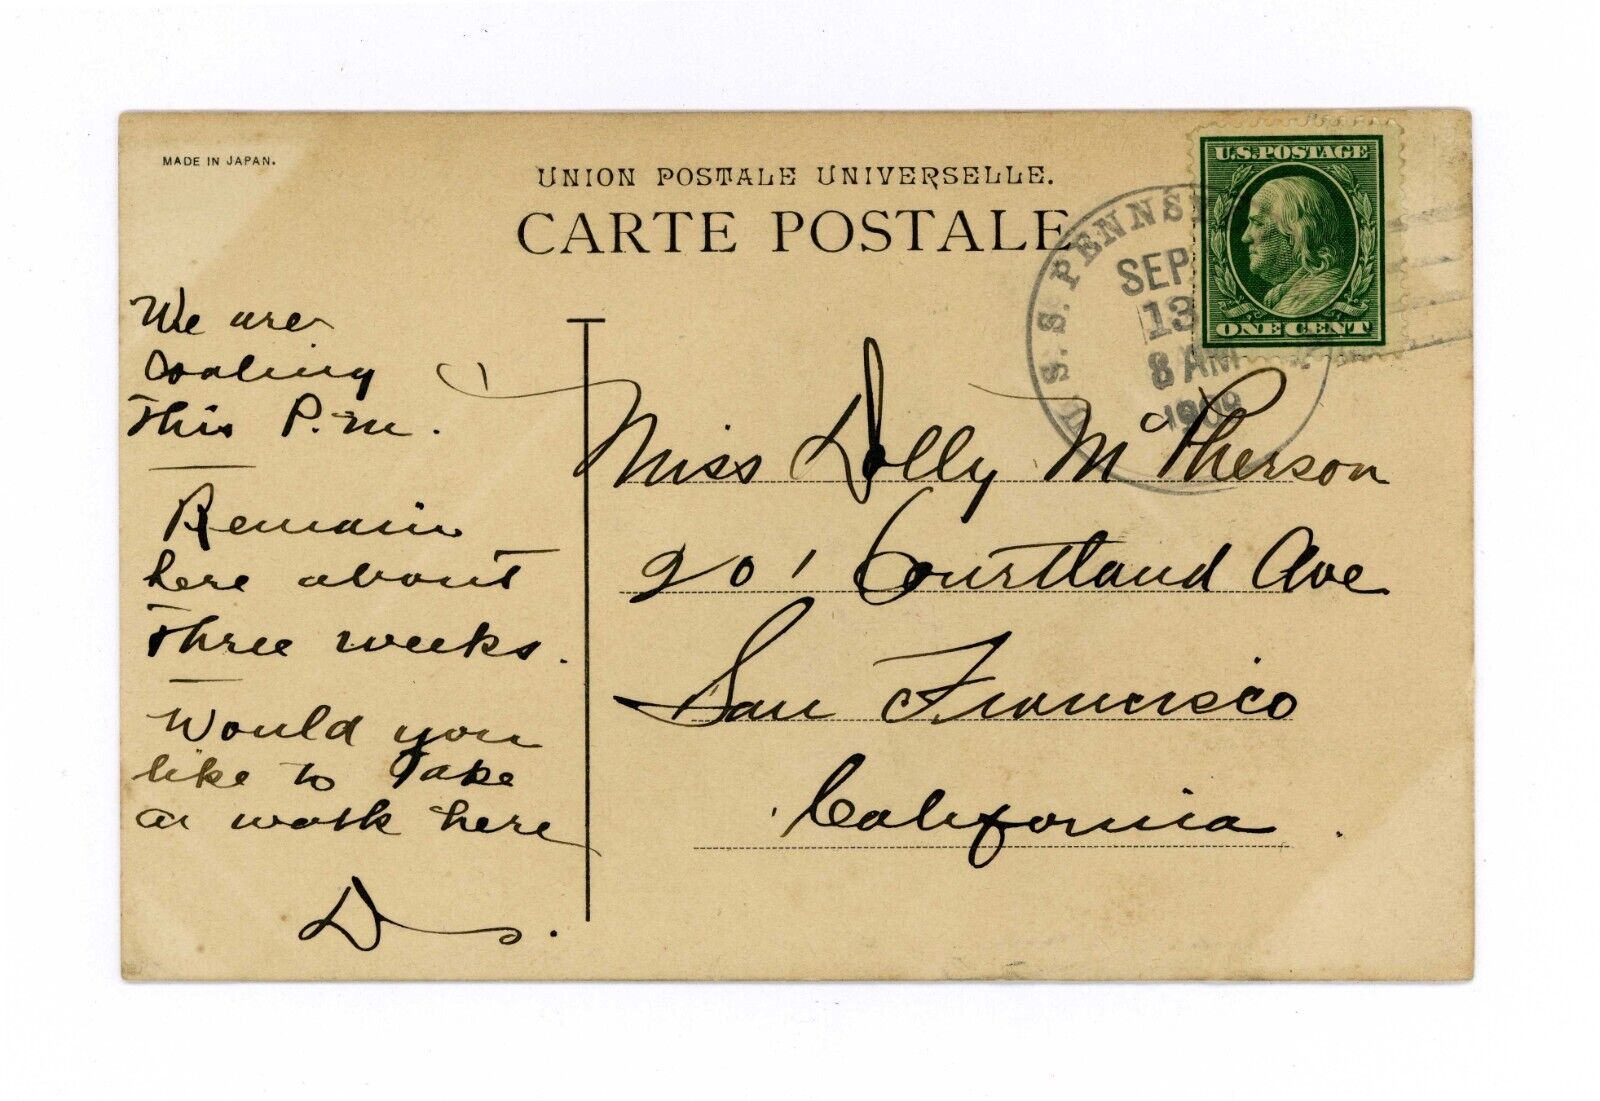 MADE IN JAPAN.
UNION POSTALE UNIVERSELLE.
CARTE POSTALE
U.S. POSTAGE
ONE CENT
U. S. S. PENNS
SEP
13
8 AM
1908
We are
coaling
this P.M.
Remain
here about
three weeks.
Would you
like to take
a walk here
D
Miss Dolly McPherson
201 Courtland Ave
San Francisco
California.